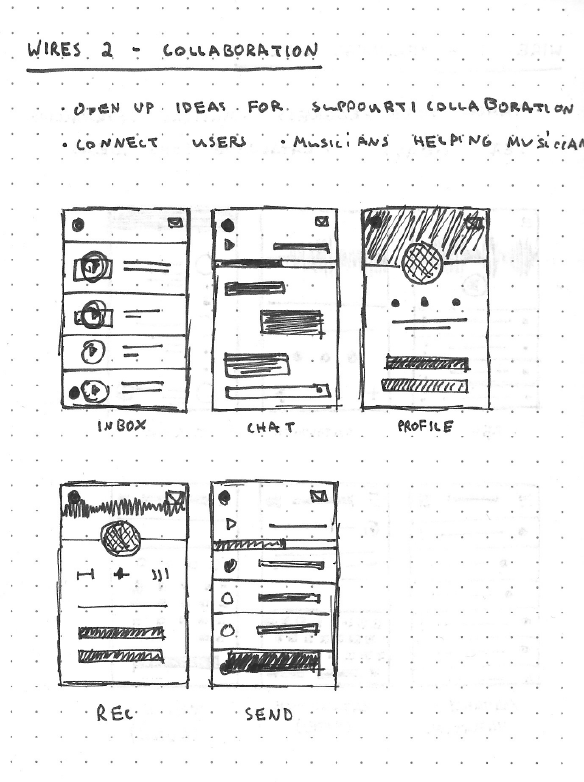 WIRES 2 - COLLABORATION
• OPEN UP IDEAS FOR SUPPOURTI COLLABORATION
• CONNECT USERS • MUSICIANS HELPING MUSICIAN
INBOX CHAT PROFILE
REC SEND